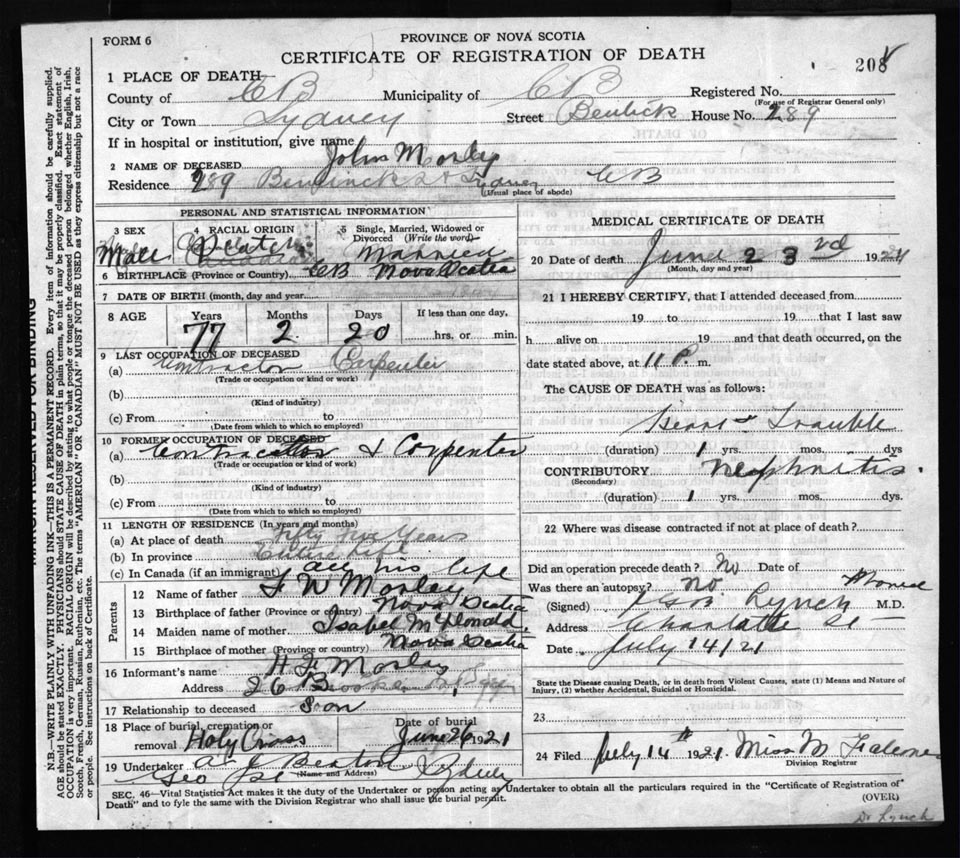 FORM 6
PROVINCE OF NOVA SCOTIA
CERTIFICATE OF REGISTRATION OF DEATH
208
1 PLACE OF DEATH
County of CB Municipality of CB Registered No.
(For use of Registrar General only)
City or Town Sydney Street Bentick House No. 289
If in hospital or institution, give name
2 NAME OF DECEASED John Morley
Residence 289 Bentinck St Sydney CB
(Usual place of abode)
PERSONAL AND STATISTICAL INFORMATION
3 SEX 4 RACIAL ORIGIN 5 Single, Married, Widowed or Divorced (Write the word)
Male Scotch Married
6 BIRTHPLACE (Province or Country) CB Nova Scotia
7 DATE OF BIRTH (month, day and year)
8 AGE Years Months Days If less than one day,
77 2 20 hrs. or min.
9 LAST OCCUPATION OF DECEASED
(a) Contractor Carpenter
(Trade or occupation or kind or work)
(b)
(Kind of industry)
(c) From to
(Date from which to which so employed)
10 FORMER OCCUPATION OF DECEASED
(a) Contractor & Carpenter
(Trade or occupation or kind of work)
(b)
(Kind of industry)
(c) From to
(Date from which to which so employed)
11 LENGTH OF RESIDENCE (In years and months)
(a) At place of death Fifty Years
(b) In province Entire life
(c) In Canada (if an immigrant) all his life
Parents
12 Name of father F W Morley
13 Birthplace of father (Province or country) Nova Scotia
14 Maiden name of mother Isabel McDonald
15 Birthplace of mother (Province or country) Nova Scotia
16 Informant's name H F Morley
Address 26
17 Relationship to deceased Soon
18 Place of burial, cremation or removal Holy Cross Date of burial June 26 1921
19 Undertaker A J Beaton
(Name and Address)
Geo St Sydney
MEDICAL CERTIFICATE OF DEATH
20 Date of death June 23rd 1921
(Month, day and year)
21 I HEREBY CERTIFY, that I attended deceased from
19 to 19 that I last saw
h alive on 19 and that death occurred, on the
date stated above, at 11 P. m.
The CAUSE OF DEATH was as follows:
Heart Trouble
(duration) 1 yrs. mos. dys
CONTRIBUTORY Nephritis.
(Secondary)
(duration) 1 yrs. mos. dys.
22 Where was disease contracted if not at place of death?
Did an operation precede death? No Date of
Was there an autopsy? No.
(Signed) Lynch M.D.
Address Charlotte St
Date July 14/21
State the Disease causing Death, or in death from Violent Causes, state (1) Means and Nature of Injury, (2) whether Accidental, Suicidal or Homicidal.
23
24 Filed July 14th 1921. Miss M
Division Registrar
SEC. 46—Vital Statistics Act makes it the duty of the Undertaker or person acting as Undertaker to obtain all the particulars required in the "Certificate of Registration of
Death" and to fyle the same with the Division Registrar who shall issue the burial permit.
(OVER)
Dr Lynch
MARGIN RESERVED FOR BINDING
N.B.—WRITE PLAINLY WITH UNFADING INK—THIS IS A PERMANENT RECORD. Every item of information should be carefully supplied.
AGE should be stated EXACTLY. PHYSICIANS should STATE CAUSE OF DEATH in plain terms, so that it may be properly classified. Exact statement of
OCCUPATION is very important. RACIAL ORIGIN will be described by stating to what people or tongue the deceased person belonged whether English, Irish,
Scotch, French, German, Russian, Ruthenian, etc. The terms "AMERICAN" OR "CANADIAN" MUST NOT BE USED as they express citizenship but not a race
or people. See instructions on back of Certificate.